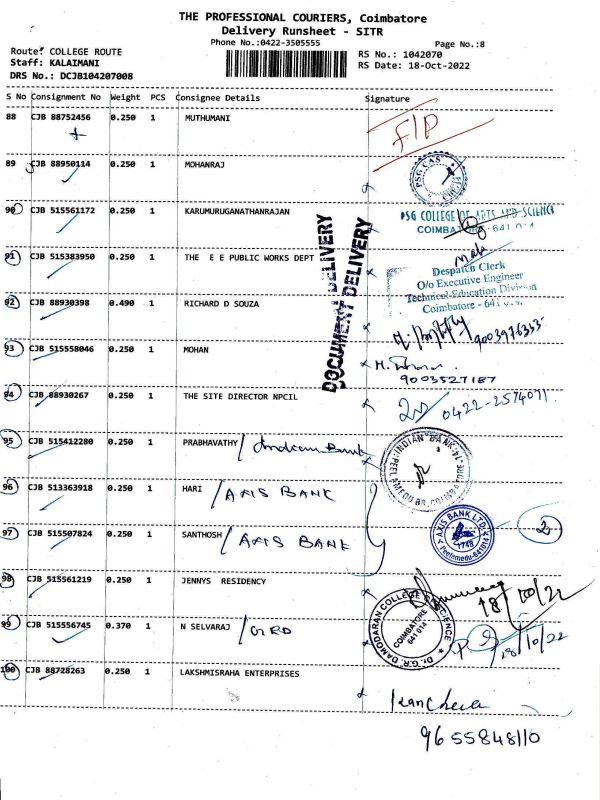 THE PROFESSIONAL COURIERS, Coimbatore
Delivery Runsheet - SITR
Phone No.:0422-3505555
Page No.:8
Route: COLLEGE ROUTE
RS No.: 1042070
Staff: KALAIMANI
RS Date: 18-Oct-2022
DRS No.: DCJB104207008
S No Consignment No Weight PCS Consignee Details Signature
88 CJB 88752456 0.250 1 MUTHUMANI
F/P
89 CJB 88950114 0.250 1 MOHANRAJ
PSG CAS
90 CJB 515561172 0.250 1 KARUMURUGANATHANRAJAN
PSG COLLEGE OF ARTS AND SCIENCE
COIMBATORE - 641 014
91 CJB 515383950 0.250 1 THE E E PUBLIC WORKS DEPT
Despatch Clerk
O/o Executive Engineer
Technical Education Division
Coimbatore - 641
DOCUMENT DELIVERY
DOCUMENT DELIVERY
92 CJB 88930398 0.490 1 RICHARD D SOUZA
9003976353
93 CJB 515558046 0.250 1 MOHAN
9003527187
94 CJB 88930267 0.250 1 THE SITE DIRECTOR NPCIL
0422-2574071
95 CJB 515412280 0.250 1 PRABHAVATHY / Indian Bank
INDIAN BANK
PEELAMEDU BR. COIMBATORE
96 CJB 513363918 0.250 1 HARI / AXIS BANK
97 CJB 515507824 0.250 1 SANTHOSH / AXIS BANK
AXIS BANK LTD.
1748
Peelamedu-641014
2
98 CJB 515561219 0.250 1 JENNYS RESIDENCY
18/10/22
99 CJB 515556745 0.370 1 N SELVARAJ / GRD
Dr. G.R. DAMODARAN COLLEGE OF SCIENCE
COIMBATORE
641 014
18/10/22
100 CJB 88728263 0.250 1 LAKSHMISRAHA ENTERPRISES
9655848110